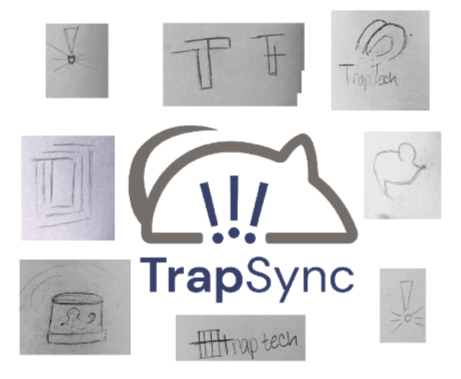 T
TrapTech
!!!
TrapSync
trap tech